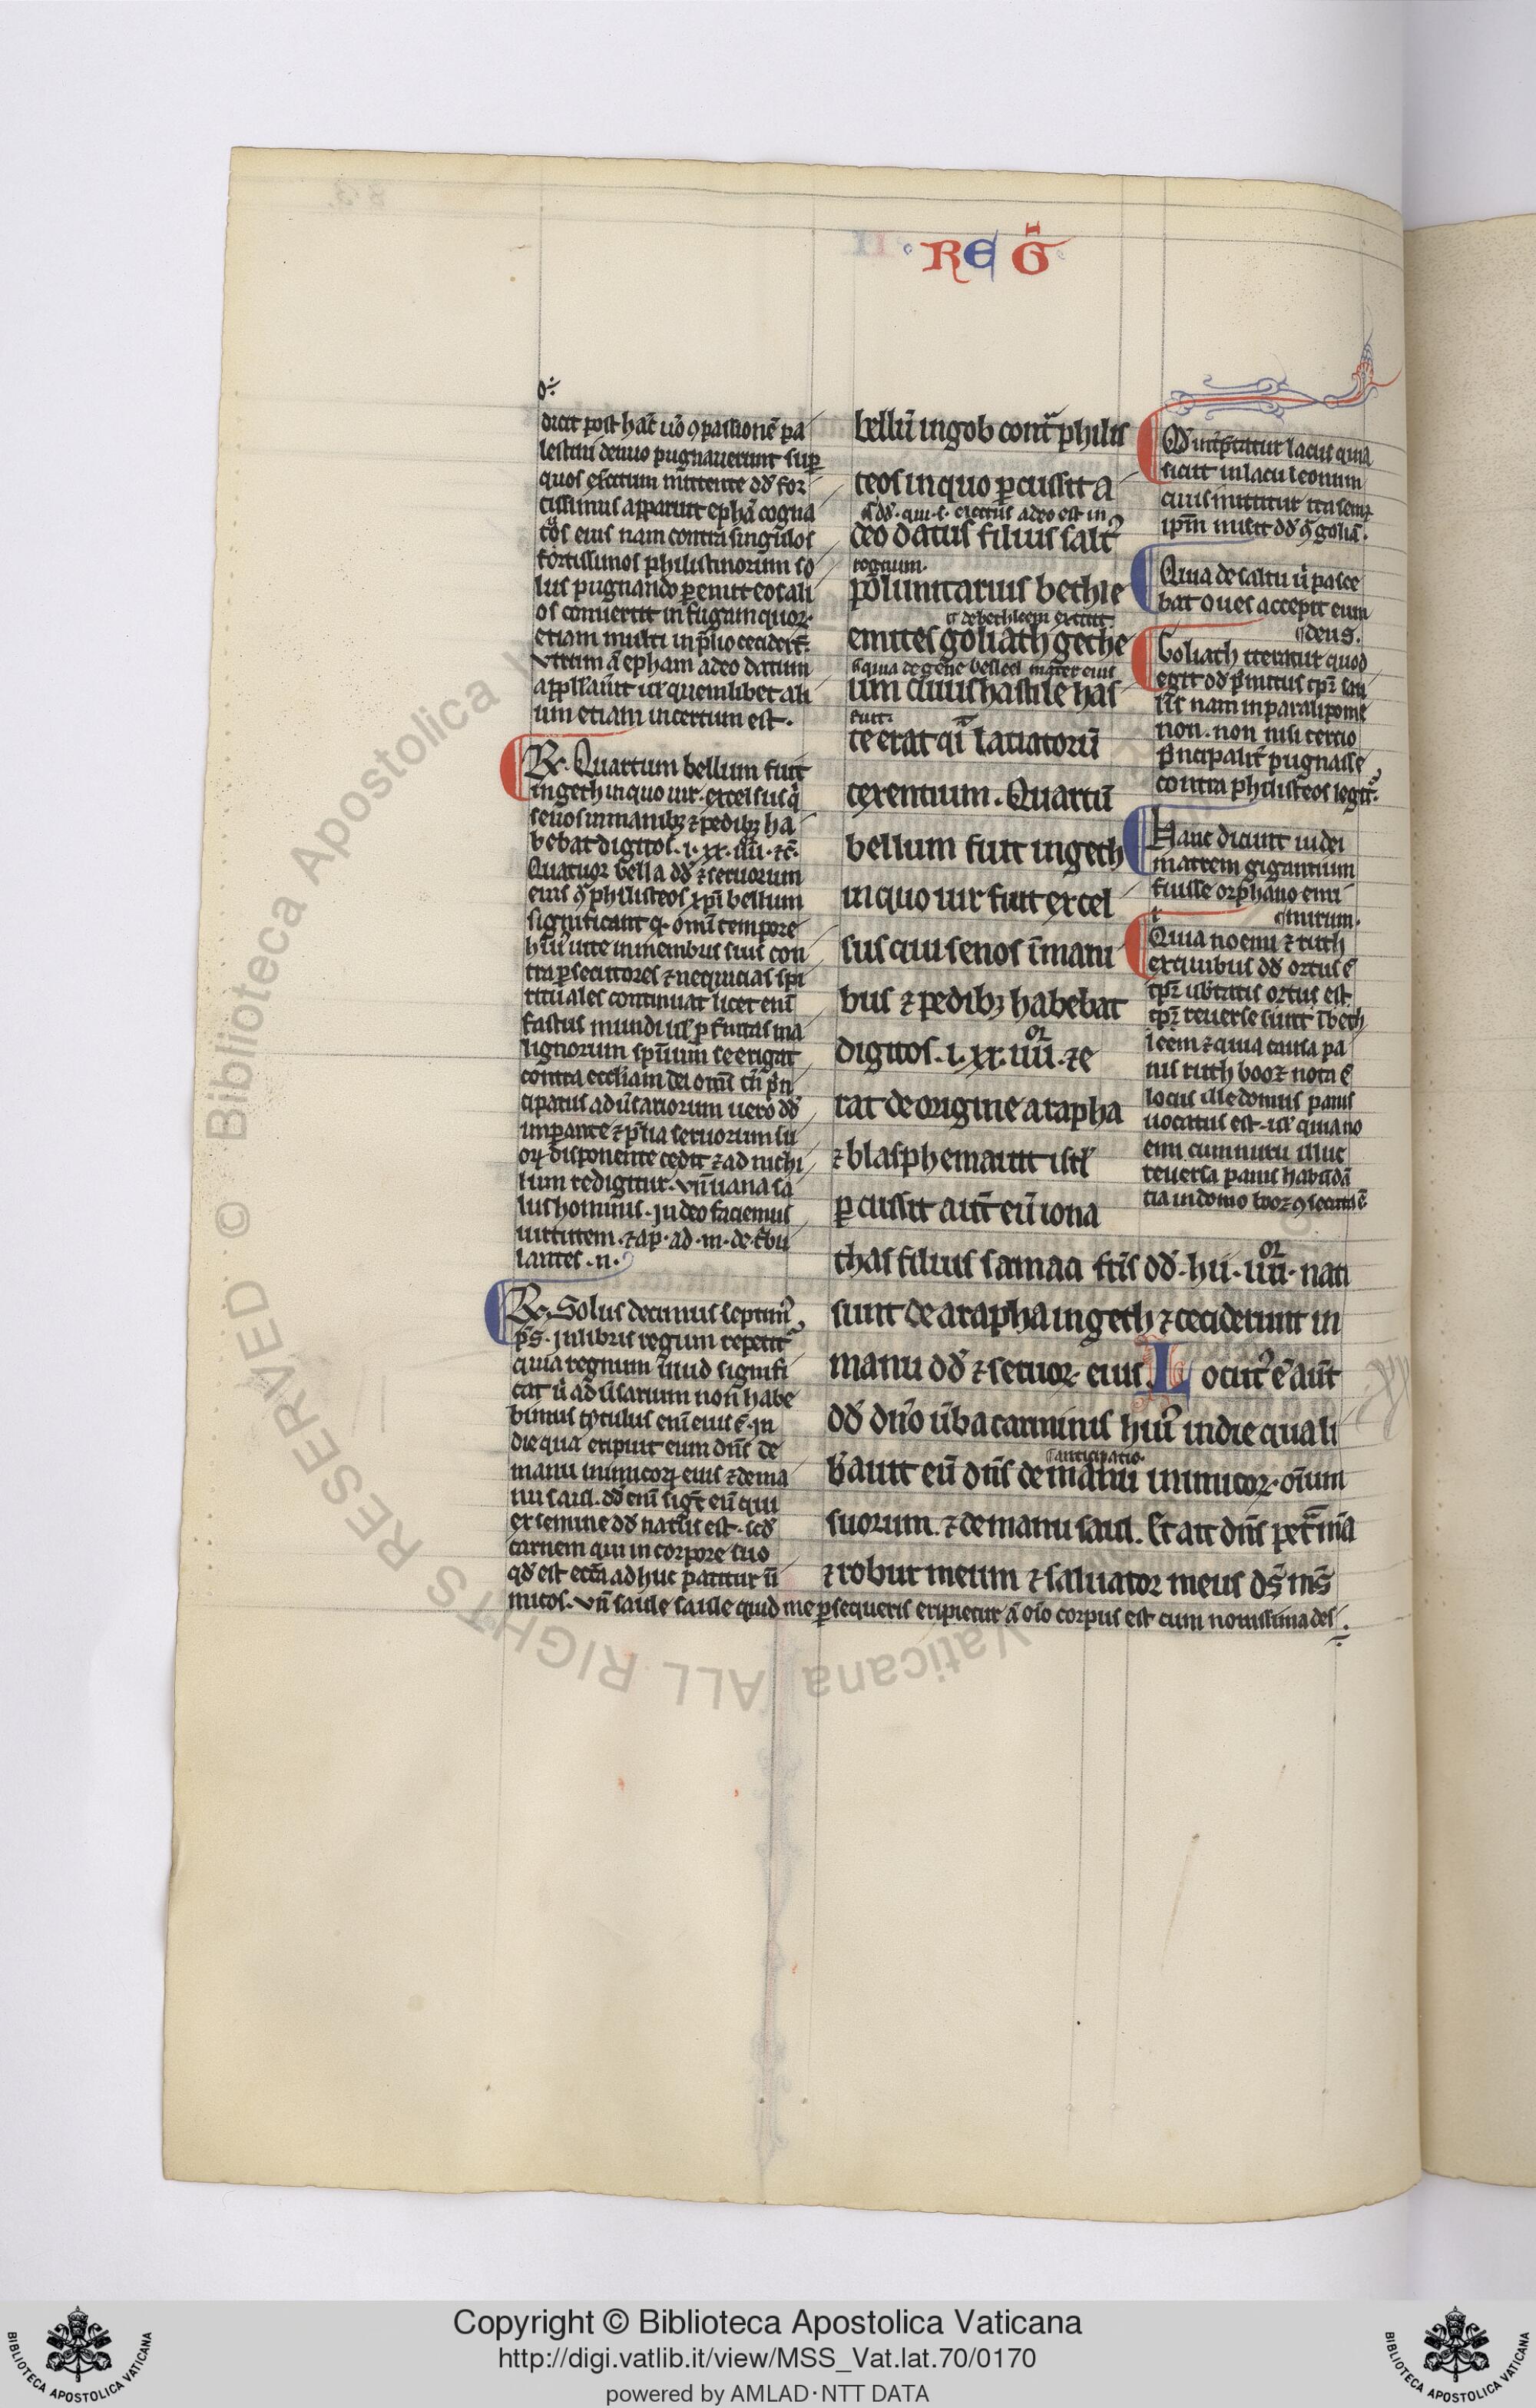 REG̃
dicit post hac̃ uo᷒ ꝯpassionẽ pa
lestini denuo pugnauerunt suꝑ
quos exercitum mittente dd̃ for
cissimus apparuit ephã cogna
tos eius nam contra singulos
fortissimos philistinorum so
lus pugnando ꝑemit eos ali
os conuertit in fugam quoꝝ
etiam multi in p̃lio cecider̃t.
Vtrum ã epham adeo datum
um etiam incertum est.
R. Quartum bellum fuit
in geth in quo uir excelsus q̃
senos in manibꝫ ⁊ pedibꝫ ha
bebat digitos .i. xx. iiii. ⁊c̃.
Quatuor bella dd̃ ⁊ seruorum
eius ꝯ̃ philisteos xp̃i bellum
significant q. omi tempore
hui᷒ uite in membris suis con
tra ꝑsecutores ⁊ nequicias spi
rituales continuat licet enĩ
fastus mundi uł ꝑfunctas ma
lignorum sp̃uum se erigat
contra eccl̃iam dei omĩ tñ p̃n
cipatus adũsariorum uero dd̃
imperante ⁊ p̃lia seruorum su
oꝝ disponente cedit ⁊ ad nichi
lum redigitur. Vñ uana sa
lus hominis. in deo faciemus
uirtutem ⁊ ap̃. ad .iii. de t̃bu
lantes .n.
R. Solus decimus septim᷒
p̃s. in libris regum repetit᷑
quia regnum illud signifi
cat ũ aduersarium non habe
bimus tytulus enĩ eius ẽ. in
die qua eripuit eum dñs de
manu inimicoꝝ eius ⁊ de ma
nu saul. dd̃ enĩ sigt̃ eũ qui
ex semine dd̃ natus est. scd̃
carnem qui in corpore suo
qd̃ est eccl̃ia adhuc patitur ini
micos. Vñ saule saule quid me ꝑsequeris eripietur ã oĩo corpus est cum nouissima des.
bellũ in gob cont᷑ philis
teos in quo ꝑcussit a
deo datus filius salt᷒
polimitarius bethle
de bethleem extitit.
emites goliath gethe
um cuius hastile has
fuit.
te erat qĩ liciatoriũ
texentium. Quartũ
bellum fuit in geth
in quo uir fuit excel
sus qui senos ĩ mani
bus ⁊ pedibꝫ habebat
digitos .i. xx. iiii. ⁊ e
rat de origine arapha
⁊ blasphemauit isrł
ꝑcussit aut̃ eũ iona
thas filius samaa fr̃is dd̃. hii iiii. nati
sunt de arapha in geth ⁊ ceciderunt in
manu dd̃ ⁊ seruoꝝ eius. Locut᷒ ẽ aut̃
dd̃ dño ũba carminis hui᷒ in die qua li
anticipatio.
b̃auit eũ dñs de manu inimicoꝝ oĩum
suorum ⁊ de manu saul. Et ait dñs pet̃ mã
⁊ robur meum ⁊ saluator meus ds̃ ms̃
Gob int̃p̃tatur lacus quia
sicut in lacu leonum
ciuis mittitur ita semꝑ
ip̃m misit dd̃ ꝯ̃ goliã.
Quia de saltu ũ pasce
bat oues accepit eum
deus.
Goliath iteratur quod
egit dd̃ p̃mitus tp̃r sau
lis nam in paralipome
non. non nisi tercio
p̃ncipalit̃ pugnasse
contra philisteos legit᷑.
Hanc dicunt iudei
matrem gigantium
fuisse orphano emi
nurum.
Quia noemi ⁊ ruth
ex quibus dd̃ ortus ẽ
tp̃r ub̃tatis ortus est
tp̃r reuerse sunt ĩ beth
leem ⁊ quia causa pa
nis ruth booz nota ẽ
locus ille domus panis
uocatus est. uł quia no
emi cum nuru illuc
reuersa panis habũdã
tia in domo booz ꝯsecuta ẽ
Copyright © Biblioteca Apostolica Vaticana
http://digi.vatlib.it/view/MSS_Vat.lat.70/0170
powered by AMLAD·NTT DATA
BIBLIOTECA APOSTOLICA VATICANA
BIBLIOTECA APOSTOLICA VATICANA
© Biblioteca Apostolica Vaticana ALL RIGHTS RESERVED